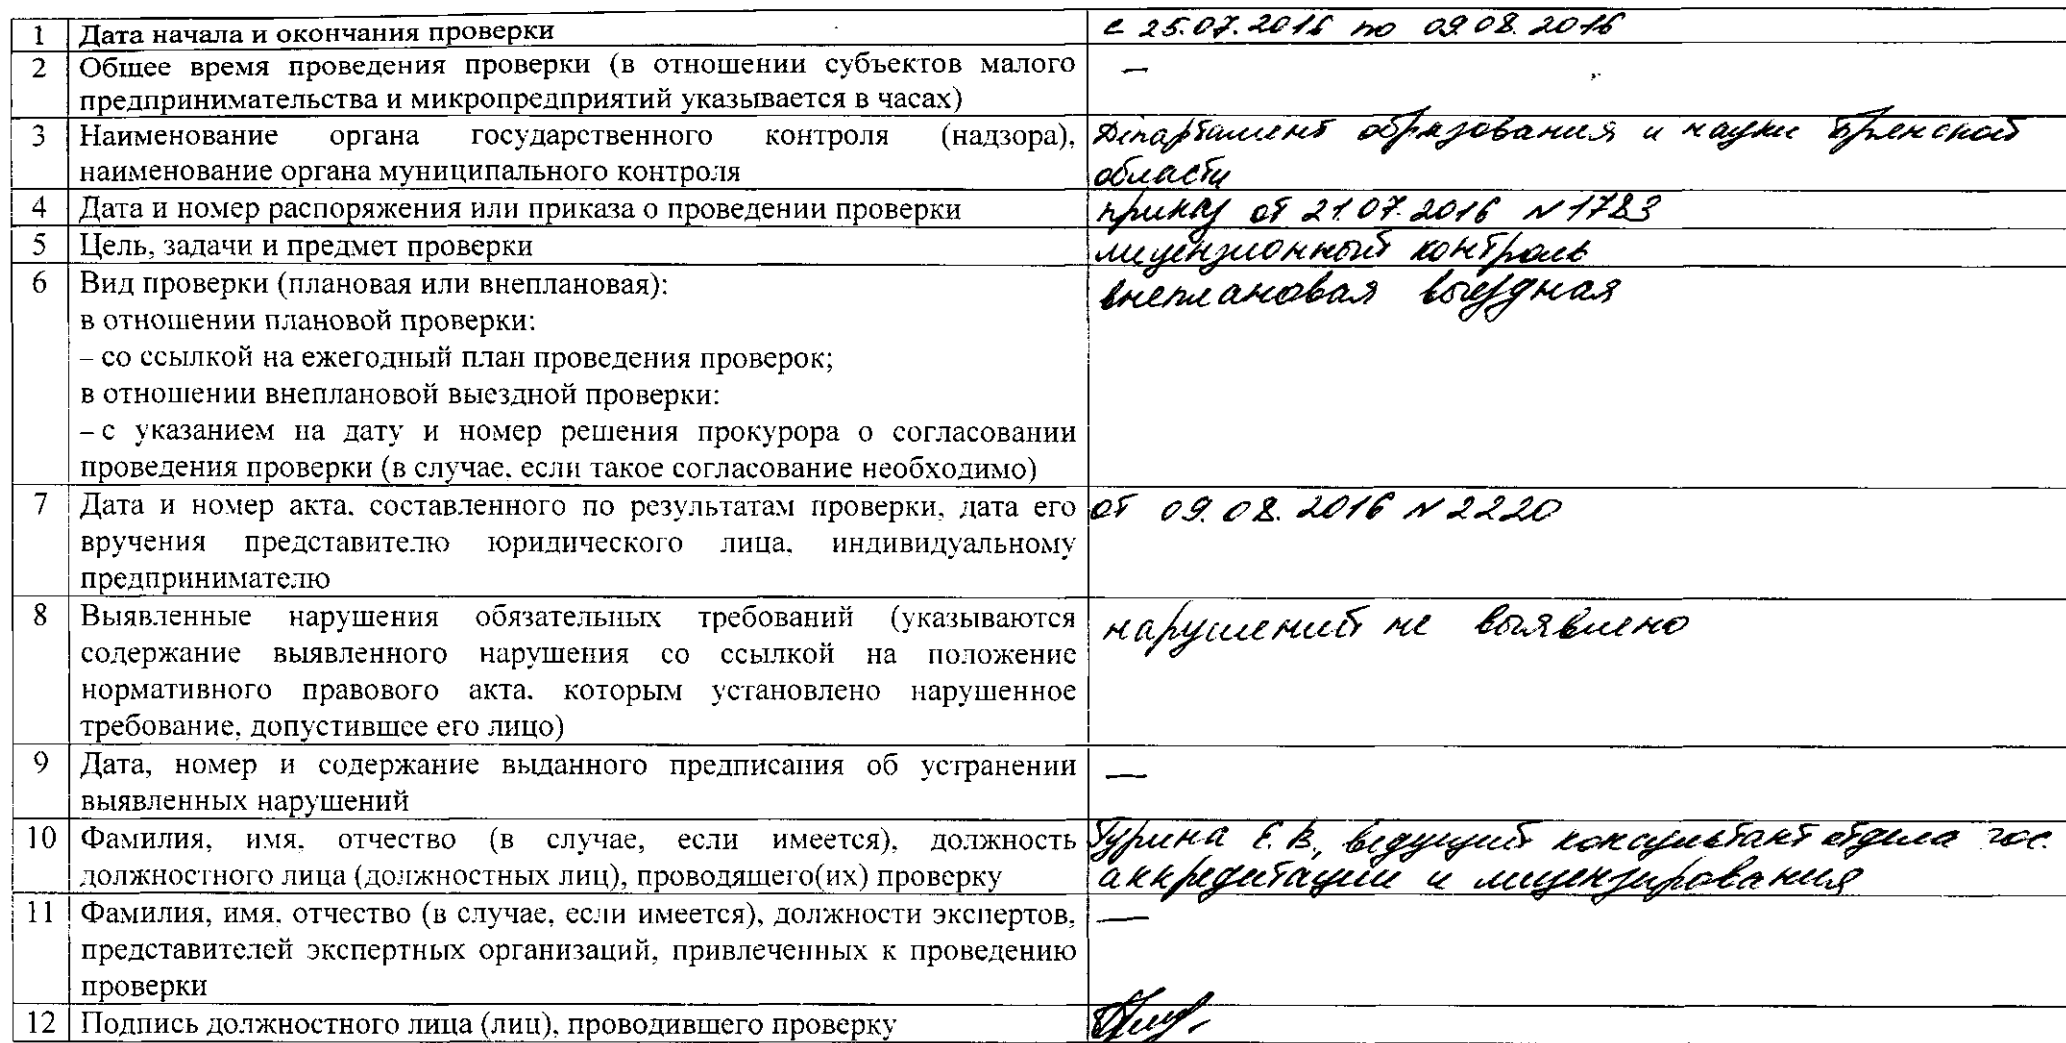 1 Дата начала и окончания проверки с 25.07.2016 по 09.08.2016
2 Общее время проведения проверки (в отношении субъектов малого —
предпринимательства и микропредприятий указывается в часах)
3 Наименование органа государственного контроля (надзора), Департамент образования и науки Брянской
наименование органа муниципального контроля области
4 Дата и номер распоряжения или приказа о проведении проверки приказ от 21.07.2016 N 1783
5 Цель, задачи и предмет проверки лицензионный контроль
6 Вид проверки (плановая или внеплановая): внеплановая выездная
в отношении плановой проверки:
– со ссылкой на ежегодный план проведения проверок;
в отношении внеплановой выездной проверки:
– с указанием на дату и номер решения прокурора о согласовании
проведения проверки (в случае, если такое согласование необходимо)
7 Дата и номер акта, составленного по результатам проверки, дата его от 09.08.2016 N 2220
вручения представителю юридического лица, индивидуальному
предпринимателю
8 Выявленные нарушения обязательных требований (указываются нарушений не выявлено
содержание выявленного нарушения со ссылкой на положение
нормативного правового акта, которым установлено нарушенное
требование, допустившее его лицо)
9 Дата, номер и содержание выданного предписания об устранении —
выявленных нарушений
10 Фамилия, имя, отчество (в случае, если имеется), должность Гурина Е.В., ведущий консультант отдела гос.
должностного лица (должностных лиц), проводящего(их) проверку аккредитации и лицензирования
11 Фамилия, имя, отчество (в случае, если имеется), должности экспертов, —
представителей экспертных организаций, привлеченных к проведению
проверки
12 Подпись должностного лица (лиц), проводившего проверку